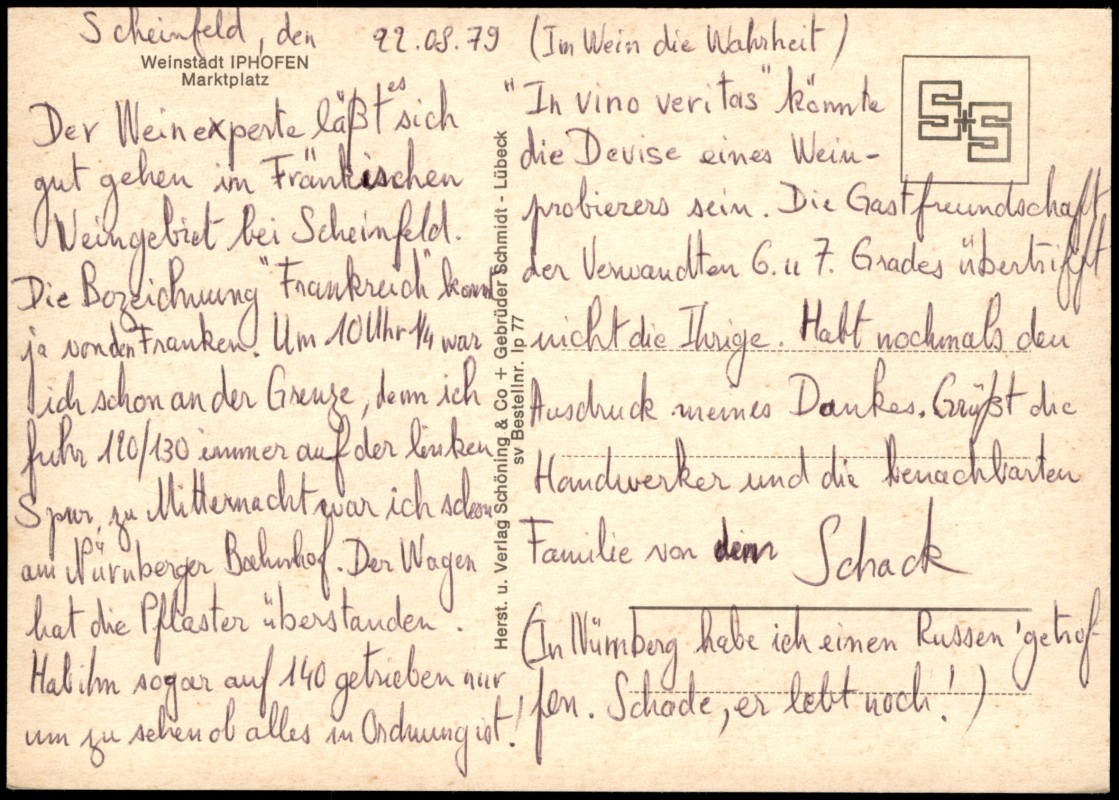 Scheinfeld, den 22.08.79
Weinstadt IPHOFEN
Marktplatz
Der Weinexperte läßt es sich
gut gehen im Fränkischen
Weingebiet bei Scheinfeld.
Die Bezeichnung "Frankreich" kommt
ja von den Franken. Um 10 Uhr 1/4 war
ich schon an der Grenze, denn ich
fuhr 120/130 immer auf der linken
Spur, zu Mitternacht war ich schon
am Nürnberger Bahnhof. Der Wagen
hat die Pflaster überstanden.
Hab ihm sogar auf 140 getrieben nur
um zu sehen ob alles in Ordnung ist!
Herst. u. Verlag Schöning & Co + Gebrüder Schmidt - Lübeck
sv Bestellnr. Ip 77
(Im Wein die Wahrheit)
"In vino veritas" könnte
die Devise eines Wein-
probierers sein. Die Gastfreundschaft
der Verwandten 6. u 7. Grades übertrifft
nicht die Ihrige. Habt nochmals den
Ausdruck meines Dankes. Grüßt die
Handwerker und die benachbarten
Familie von dem Schack
(In Nürnberg habe ich einen Russen 'getrof-
fen. Schade, er lebt noch!)
S+S